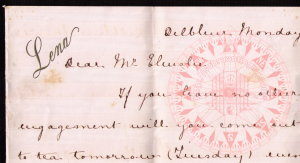 Lena
Monday
Dear Mr
If you have no other
engagement will you come out
to tea tomorrow (Tuesday)